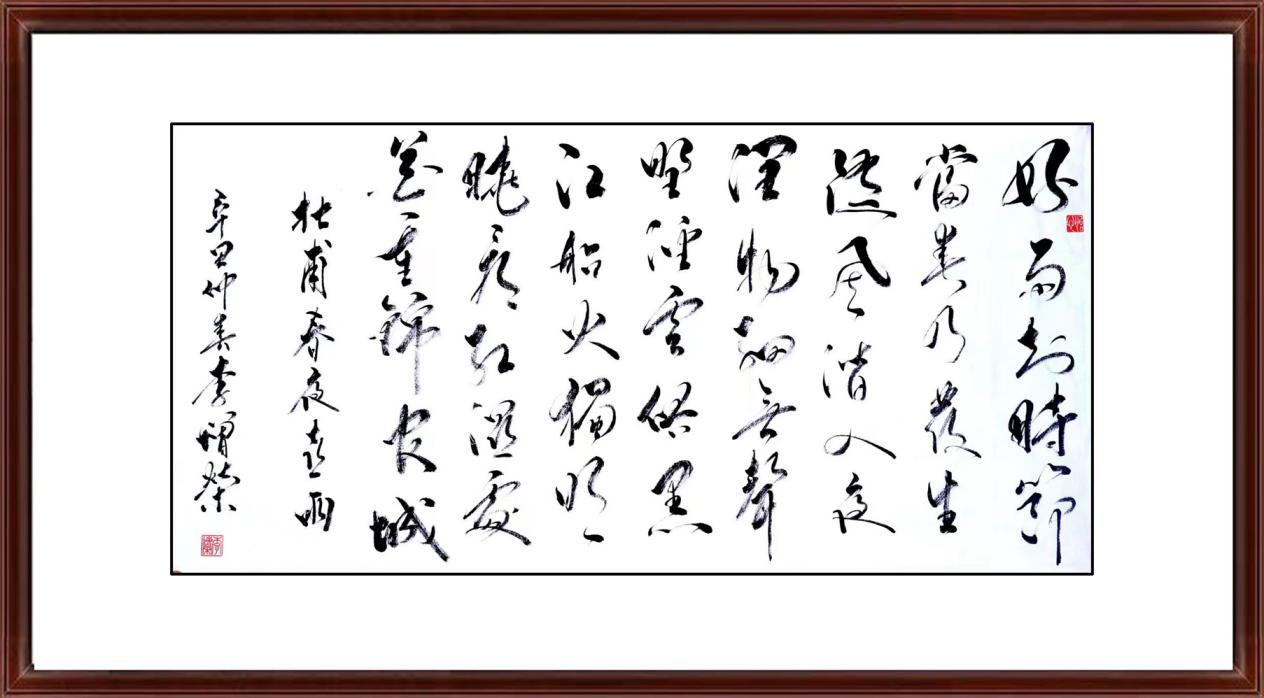 好雨知時節
當春乃發生
隨風潛入夜
潤物細無聲
野徑雲俱黑
江船火獨明
曉看紅濕處
花重錦官城
杜甫春夜喜雨
辛丑仲春李增榮